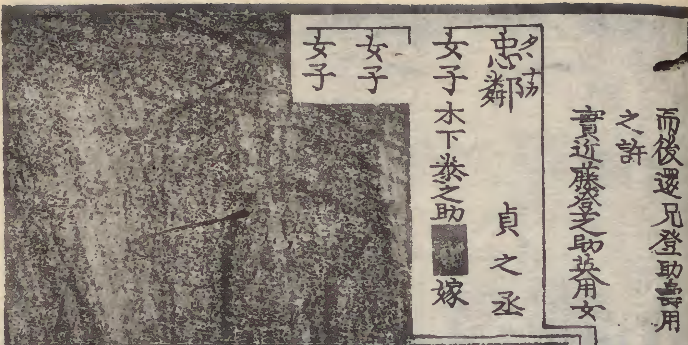 而後還兄登助壽用
之許
實近藤登之助英用女
忠鄰 貞之丞
女子 木下泰之助 嫁
女子
女子